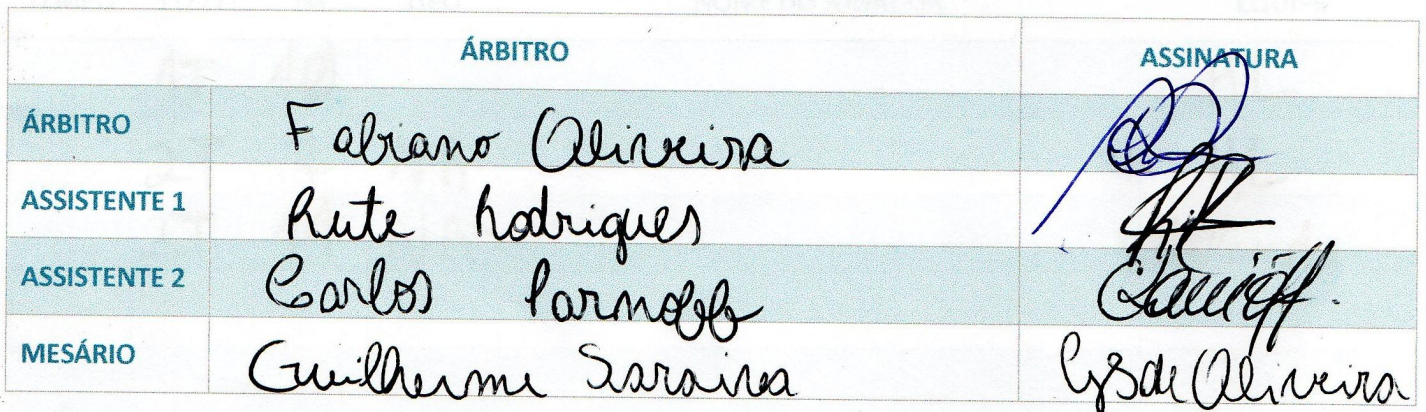 ÁRBITRO ASSINATURA
ÁRBITRO Fabiano Oliveira
ASSISTENTE 1 Rute Rodrigues
ASSISTENTE 2 Carlos
MESÁRIO Guilherme Saraiva GSde Oliveira